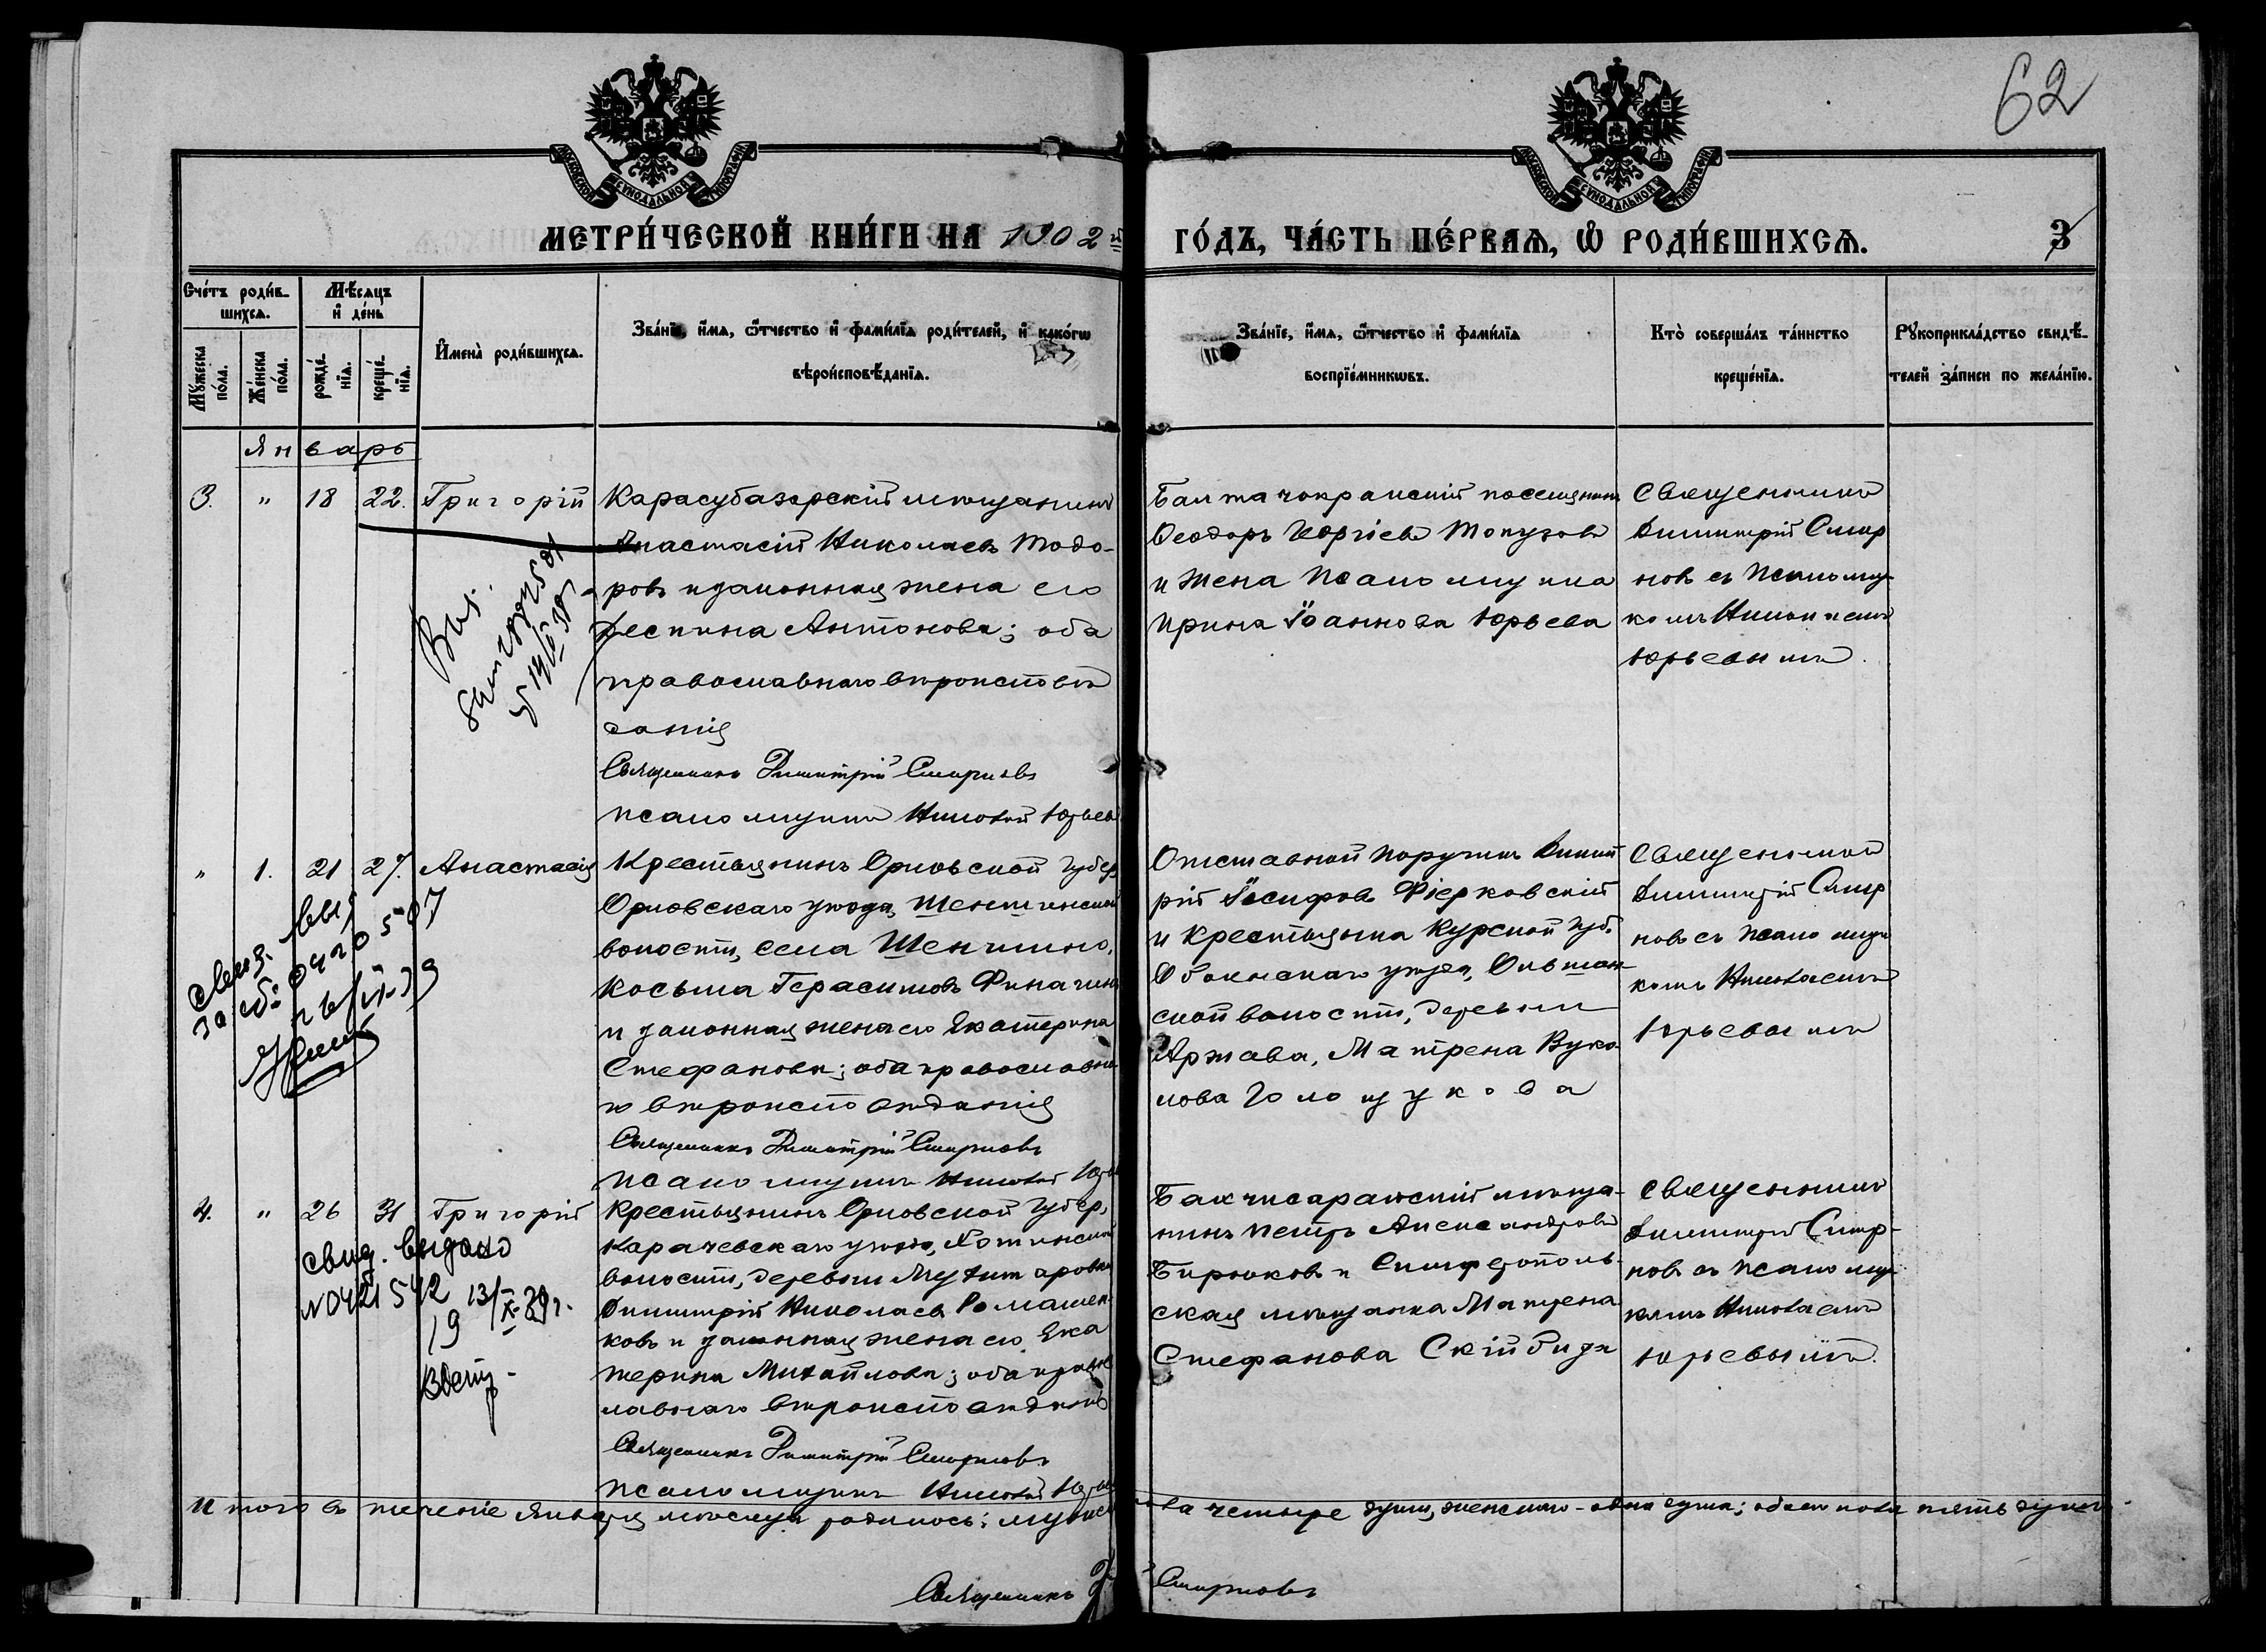 62
МОСКОВСКОЙ СѴНОДАЛЬНОЙ ТИПОГРАФІИ
МОСКОВСКОЙ СѴНОДАЛЬНОЙ ТИПОГРАФІИ
МЕТРИ́ЧЕСКОЙ КНИ́ГИ НА 1902й ГО́ДЪ, ЧА́СТЬ ПЕ́РВАѦ, Ѽ РОДИ́ВШИХСѦ.
3
Счéтъ роди́в-
шихсѧ.
Мѣ́сѧцъ
и҆ де́нь
Мꙋ́жеска
по́ла.
Же́нска
по́ла.
рожде́-
нїѧ.
креще́-
нїѧ.
И҆мена̀ роди́вшихсѧ.
Зва́нїе, и҆́мѧ, ѻ҆́тчество и҆ фами́лїѧ роди́телей, и҆ како́гѡ
вѣроисповѣ́данїѧ.
Зва́нїе, и҆́мѧ, ѻ҆́тчество и҆ фами́лїѧ
воспрїе́мникѡвъ.
Кто̀ соверша́лъ та́инство
креще́нїѧ.
Рꙋкоприкла́дство свидѣ́-
телей за́писи по жела́нїю.
Январь
3. " 18 22. Григорій
Карасубазарскій мѣщанинъ
Анастасій Николаевъ Тодо-
ровъ и законная жена его
Деспина Антонова; оба
православнаго вѣроисповѣ
данія
Священникъ Димитрій Смирновъ
псаломщикъ Николай Юрьевъ
посѣлянинъ
Ѳеодоръ Георгіевъ Топузовъ
и жена псаломщика
Ирина Іоаннова Юрьева
Священникъ
Димитрій Смир
новъ съ псаломщи
комъ Николаемъ
Юрьевымъ.
" 1. 21 27. Анастасія
Крестьянинъ Орловской губер
Орловскаго уѣзда, Шеншинской
волости, села Шеншино,
Косьма Герасимовъ Финачинъ
и законная жена его Екатерина
Стефанова; оба православна
го вѣроисповѣданія
Священникъ Димитрій Смирновъ
псаломщикъ Николай Юрьев
Отставной поручикъ Димит
рій Іосифовъ Фіерковскій
и крестьянка Курской губ.
Обоянскаго уѣзда, Ольшан-
ской волости, деревни
Аржава, Матрена Вуко-
лова Голощукова
Священникъ
Димитрій Смир
новъ съ псаломщи
комъ Николаемъ
Юрьевымъ
4. " 26 31 Григорій
свид. выдано
N0421542 13/X-39г.
19
Крестьянинъ Орловской губер,
Карачевскаго уѣзда, Хотинской
волости, деревни
Димитрій Николаевъ Ромашен-
ковъ и законная жена его Ека
терина Михайлова; оба правос
лавнаго вѣроисповѣданія
Священникъ Димитрій Смирновъ
псаломщикъ Николай Юрьев
Бахчисарайскій мѣща-
нинъ Петръ Александровъ
Бирюковъ и Симферополь-
ская мѣщанка Матрена
Стефанова Скійбида
Священникъ
Димитрій Смир-
новъ съ псаломщи
комъ Николаемъ
Юрьевымъ.
Итого въ теченіе Января мѣсяца родилось: мужеска четыре души, женскаго - одна душа; обоего пола пять душъ.
Священникъ Д. Смирновъ